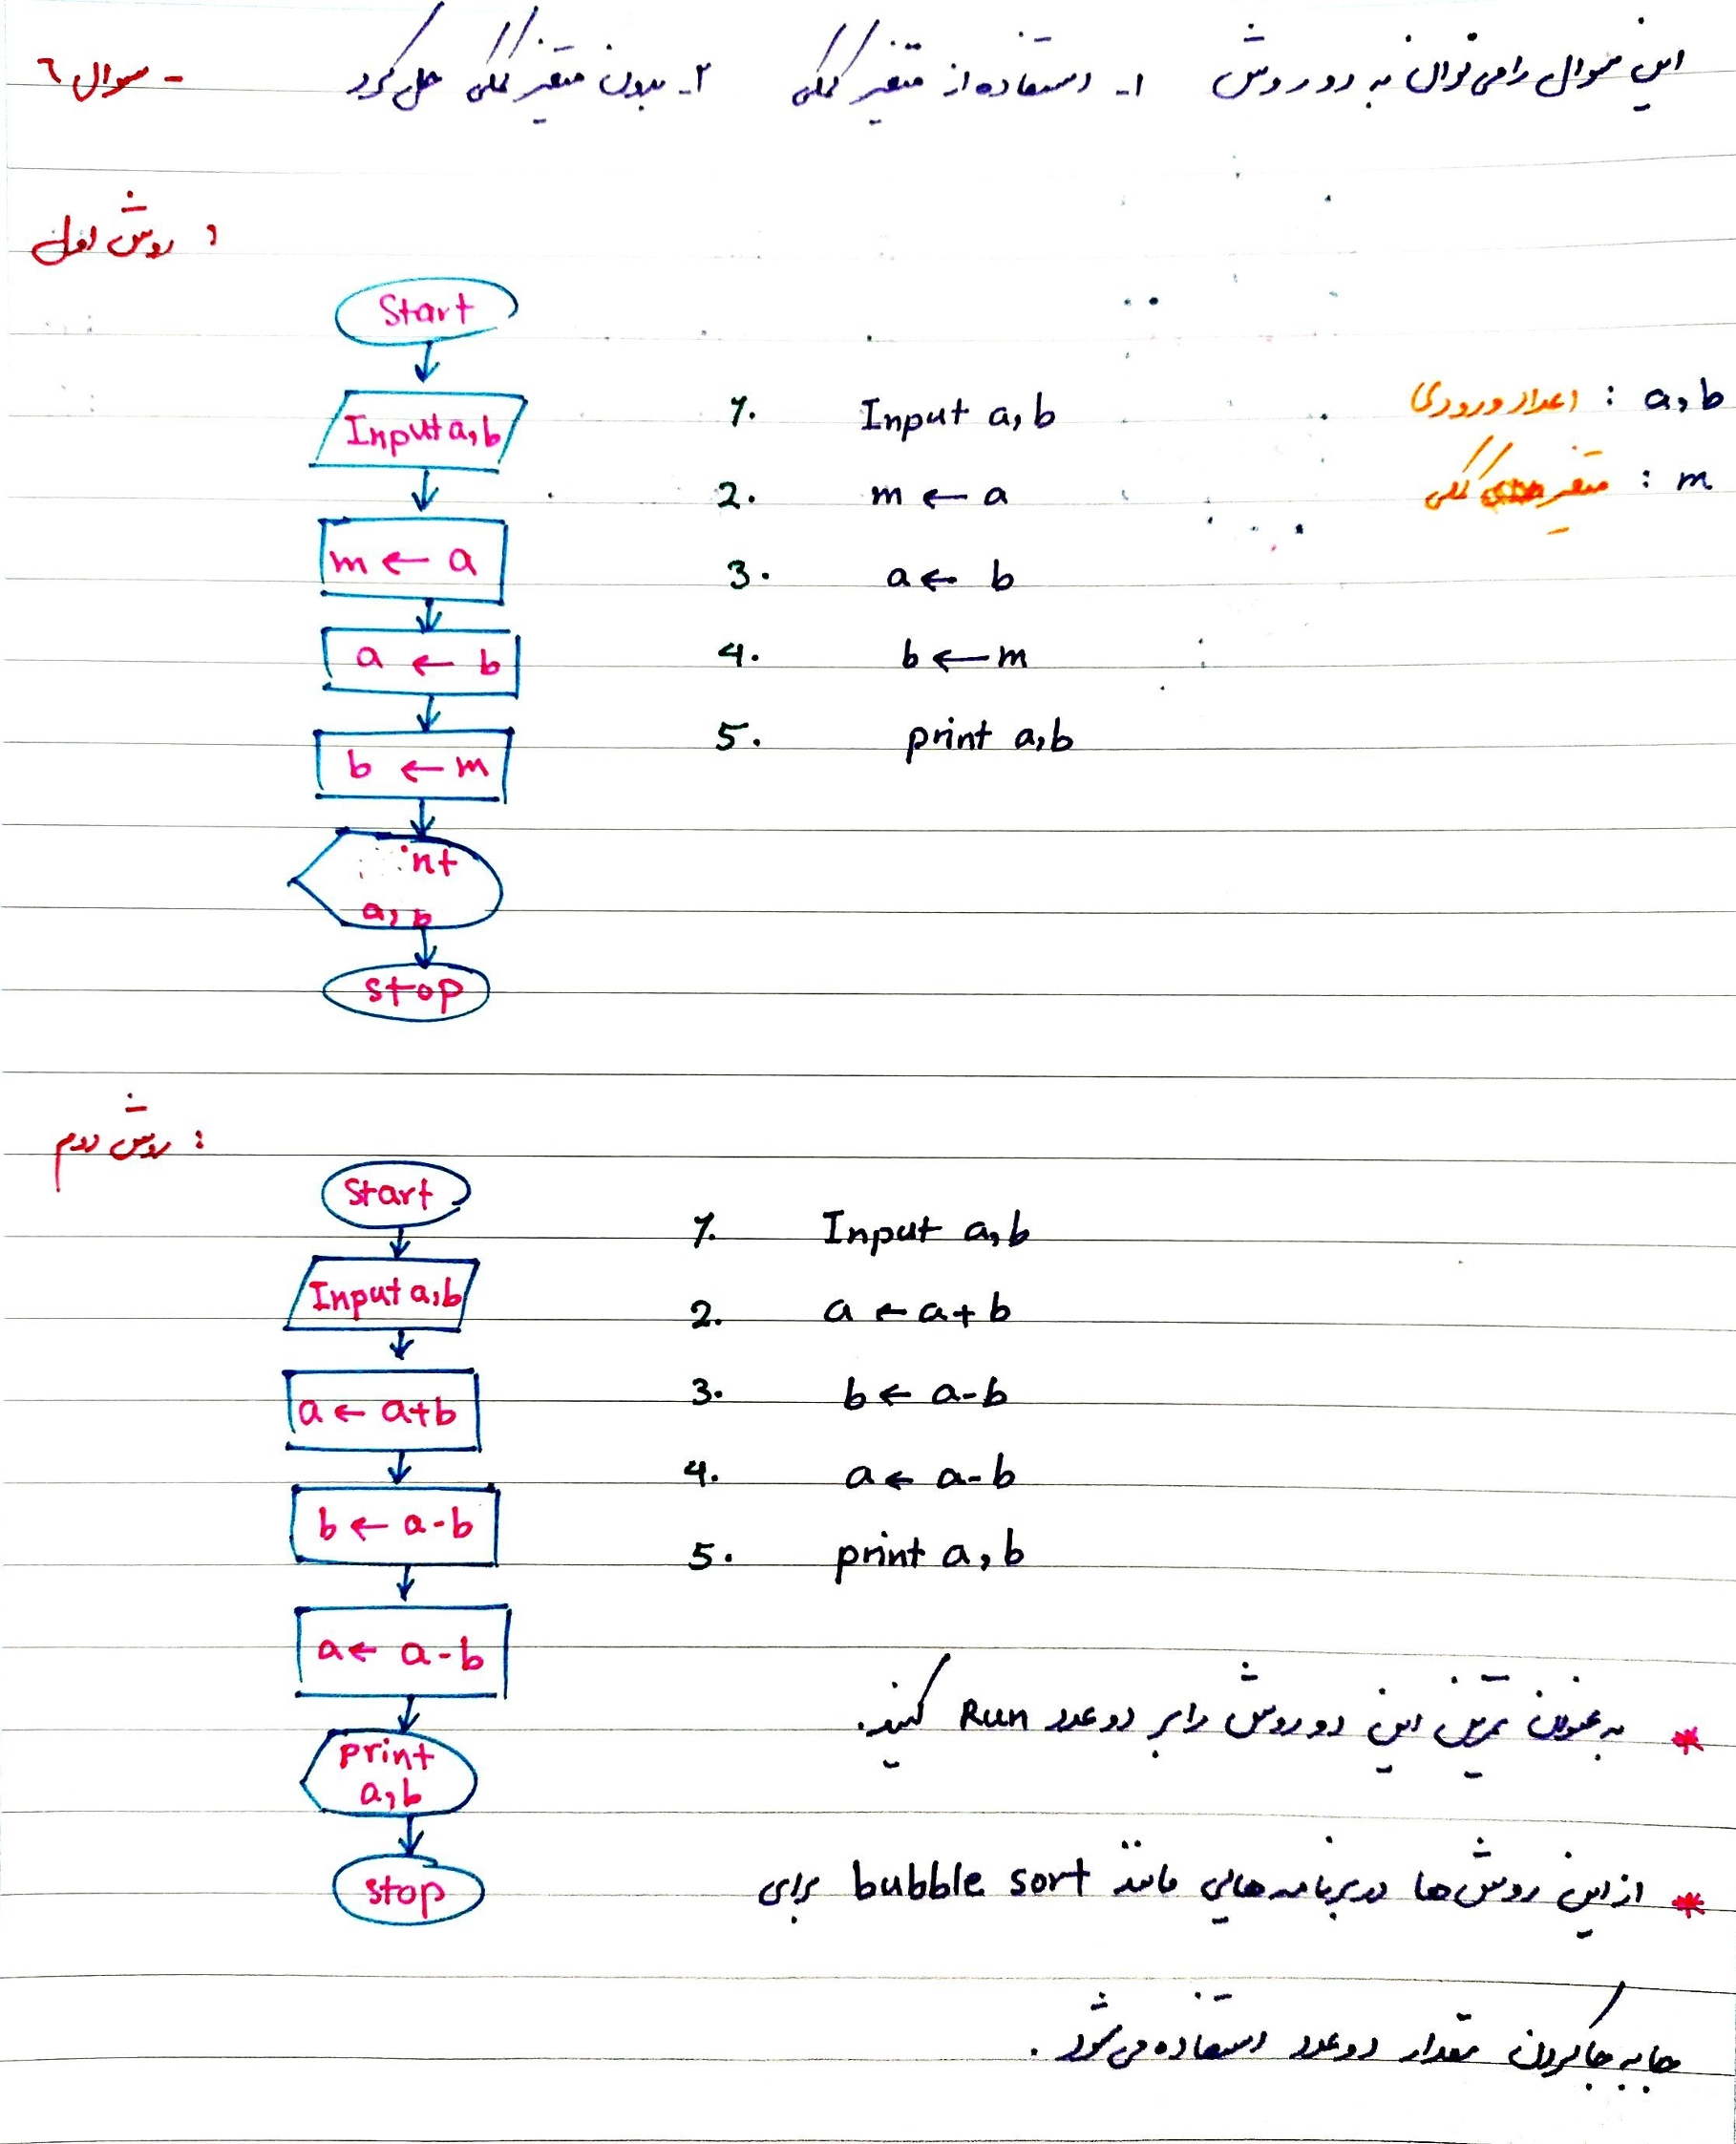 این سوال را می توان به دو روش ۱- استفاده از متغیر کمکی ۲- بدون متغیر کمکی حل کرد
- سوال ٦
روش اول :
Start
Input a,b
m ← a
a ← b
b ← m
int
a,b
stop
1. Input a,b
2. m ← a
3. a ← b
4. b ← m
5. print a,b
a,b : اعداد ورودی
m : متغیر کمکی
روش دوم :
Start
Input a,b
a ← a+b
b ← a-b
a ← a-b
print
a,b
stop
1. Input a,b
2. a ← a+b
3. b ← a-b
4. a ← a-b
5. print a,b
* به عنوان تمرین این دو روش را بر دو عدد Run کنید.
* از این روش ها در برنامه هایی مانند bubble sort برای
جا به جا کردن مقدار دو عدد استفاده می شود .